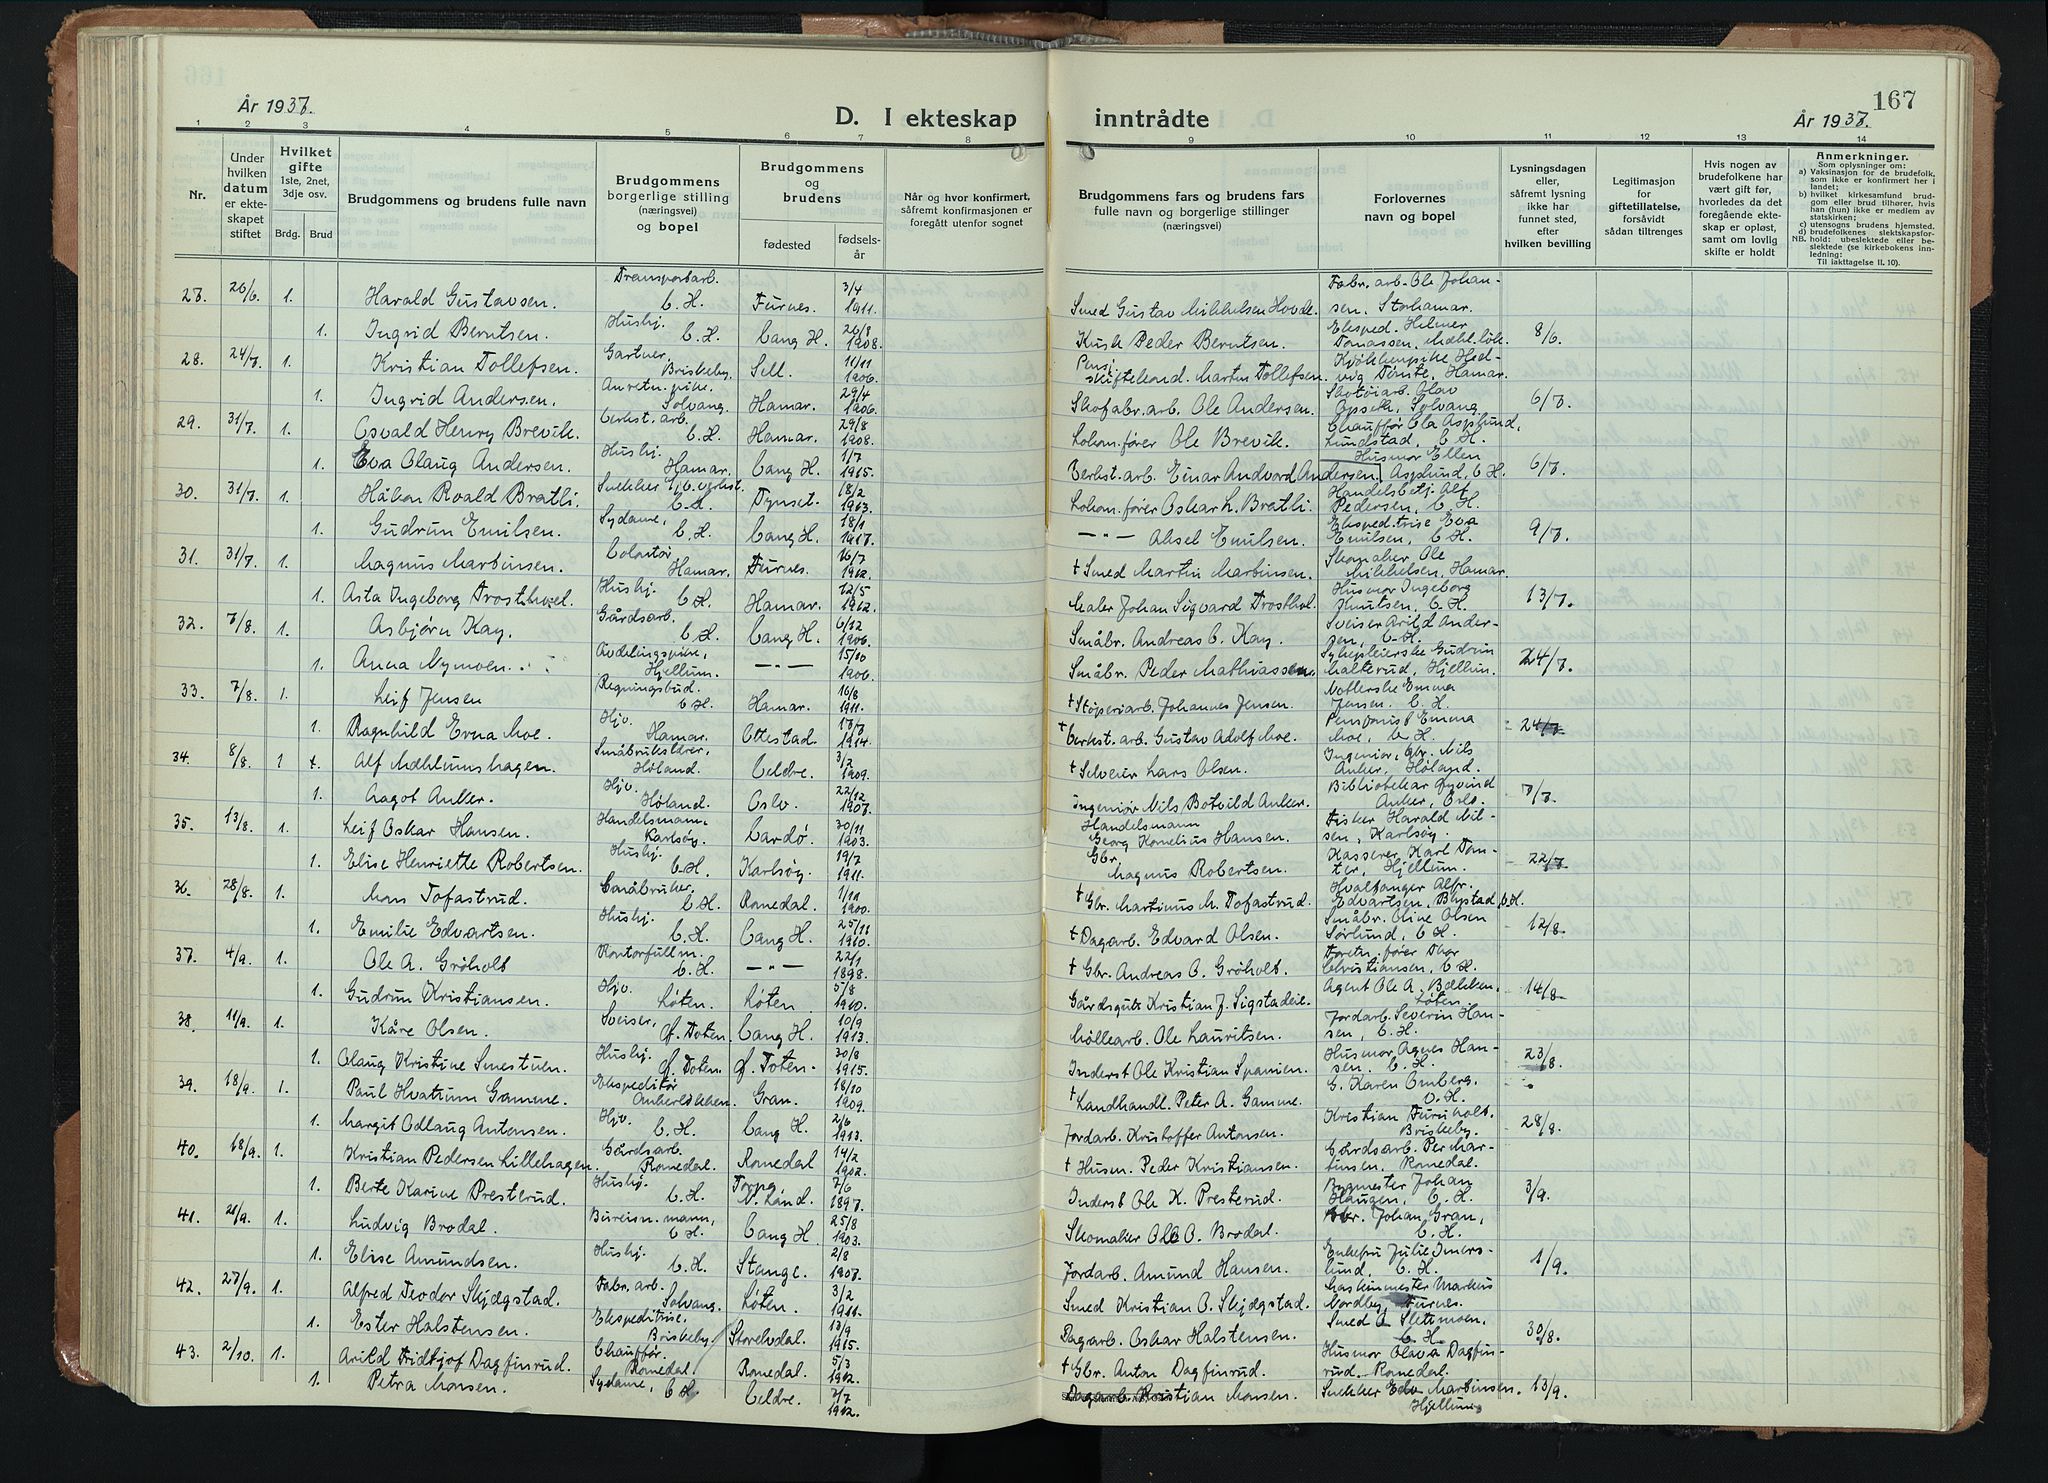 167
År 1937.
D. I ekteskap inntrådte
År 1937.
1 2 3 4 5 6 7 8 9 10 11 12 13 14
Nr.
Under hvilken datum er ekteskapet stiftet
Hvilket gifte 1ste, 2net, 3dje osv.
Brdg. Brud
Brudgommens og brudens fulle navn
Brudgommens borgerlige stilling (næringsvei) og bopel
Brudgommens og brudens
fødested
fødselsår
Når og hvor konfirmert, såfremt konfirmasjonen er foregått utenfor sognet
Brudgommens fars og brudens fars fulle navn og borgerlige stillinger (næringsvei)
Forlovernes navn og bopel
Lysningsdagen eller, såfremt lysning ikke har funnet sted, efter hvilken bevilling
Legitimasjon for giftetillatelse, forsåvidt sådan tiltrenges
Hvis nogen av brudefolkene har vært gift før, hvorledes da det foregående ekteskap er opløst, samt om lovlig skifte er holdt
Anmerkninger.
Som oplysninger om:
a) Vaksinasjon for de brudefolk, som ikke er konfirmert her i landet;
b) hvilket kirkesamfund brudgom eller brud tilhører, hvis han (hun) ikke er medlem av statskirken;
c) utensogns brudens hjemsted.
d) brudefolkenes slektskapsforhold: ubeslektede eller beslektede (se kirkebokens innledning:
NB.
Til iakttagelse II. 10).
27. 26/6 1. Harald Gustavsen. Transportarb. V. H. Furnes. 3/4 1911. Smed Gustav Mikkelsen Hovde. Fabr. arb. Ole Johansen. Storhamar.
1. Ingrid Berntsen. Hushj. V. H. Vang H. 26/8 1908. Kusk Peder Berntsen. Eksped. Helmer Tomassen, 8/6
28. 24/7 1. Kristian Tollefsen. Gartner, Briskeby. Sell. 11/11 1906. Pens. Martin Tollefsen. Kjøkkenpike Hamar.
1. Ingrid Andersen. Solvang. Hamar. 29/4 1906. Skofabr. arb. Ole Andersen. Skotøiarb. Olav Opseth, Solvang 6/7.
29. 31/7 1. Osvald Henry Brevik. Verkst. arb. V. H. Hamar. 29/8 1908. Lokom. fører Ole Brevik. Chauffør Ola Asplund, Lundstad, V. H.
1. Eva Olaug Andersen. Hushj. Hamar. Vang H. 1/7 1915. Verkst. arb. Einar Andvord Andersen. Husmor Ellen Asplund, V. H. 6/7.
30. 31/7 1. Håkon Roald Bratli. Snekker V. H. Tynset. 18/2 1913. Lokom. fører Oskar L. Bratli. Handelsbetj. Alf Pedersen, V. H.
1. Gudrun Emilsen. Sydame, V. H. Vang H. 18/1 1917. —"— Aksel Emilsen. Eksped.trise Eva Emilsen, V. H. 9/7.
31. 31/7. 1. Magnus Martinsen. Hamar. Furnes. 16/7 1912. † Smed Martin Martinsen. Skomaker Ole Mikkelsen, Hamar.
1. Asta Ingeborg Trosthoel. Hushj. V. H. Hamar. 12/5 1912. Maler Johan Sigvard Trosthol. Husmor Ingeborg Knutsen, V. H. 13/7.
32. 7/8. 1. Asbjørn Kay. Gårdsarb. V. H. Vang H. 6/12 1906. Småbr. Andreas O. Kay. Sveiser Arild Andersen, V. H.
1. Anna Nymoen. Avdelingspike, Hjellum. —"— 15/10 1906. Småbr. Peder Mathiassen. Sykepleierske Gudrun Malterud, Hjellum. 24/7.
33. 7/8. 1. Leif Jensen Regningsbud. V. H. Hamar. 16/8 1911. † Støperiarb. Johannes Jensen. Emma Jensen. V. H.
1. Ragnhild Erna Moe. Hjv. Hamar. Ottestad. 17/7 1914. † Verkst. arb. Gustav Adolf Moe. Pensjonist Emma Moe, V. H. 24/7
34. 8/8. 1 Alf Mæhlumshagen. Småbrukslærer, Høland. Veldre. 3/2 1909. † Selveier Lars Olsen. Ingeniør, Gbr. Nils Anker, Høland.
1. Aagot Anker. Hjv. Høland. Oslo. 22/12 1907. Ingeniør Nils Botvild Anker. Bibliotekar Øyvind Anker, Oslo. 7/7.
35. 13/8. 1. Leif Oskar Hansen. Handelsmann, Karlsøy. Vardø. 30/11 1903. Handelsmann Georg Kornelius Hansen. Fisker Harald Nilsen, Karlsøy.
1. Elise Henriette Robertsen. Hushj. V. H. Karlsøy. 19/7 1911. Gbr. Magnus Robertsen. Kasserer Karl Hjellum. 22/7
36. 28/8. 1. Mons Tofastrud. Småbruker, V. H. Romedal. 1900. † Gbr. Martinus M. Tofastrud. Hvalfanger Alfr. Edvartsen, Blystad, V. H.
1. Emilie Edvartsen. Hushj. V. H. Vang H. 25/11 1910. † Dagarb. Edvard Olsen. Småbr. Oline Olsen Sørlund, V. H. 12/8.
37. 4/9. 1. Ole A. Grøholt Kontorfullm. V. H. —"— 22/1 1898. † Gbr. Andreas O. Grøholt. Thor Christiansen, V. H.
1. Gudrun Kristiansen. Hjv. Løten. Løten 5/8 1910. Gårdsgutt Kristian J. Sigstadeie. Agent Ole A. Bækken. Løten. 14/8.
38. 11/9. 1. Kåre Olsen. Sveiser, Ø. Toten. Vang H. 10/9 1913. Møllearb. Ole Lauritsen. Jordarb. Severin Hansen, V. H.
1. Olaug Kristine Smestuen. Hushj. Ø. Toten. Ø. Toten. 30/8 1915. Inderst Ole Kristian Spanien. Husmor Agnes Hansen. V. H. 23/8.
39. 18/9. 1. Paul Hvattum Gamme. Ekspeditør Ankerløkken. Gran. 18/10 1909. † Landhandl. Peter A. Gamme. G. Karen Omberg. V. H.
1. Margit Odlaug Antonsen. Hjv. V. H. Vang H. 2/6 1913. Jordarb. Kristoffer Antonsen. Kristian Furuholt. Briskeby. 28/8.
40. 18/9. 1. Kristian Pedersen Lillehagen. Gårdsarb. Romedal. Romedal 14/2 1902. † Husm. Peder Kristiansen. Gårdsarb. Per Martinsen, Romedal.
1. Berte Karine Presterud. Hushj. V. H. Torpa N. Land. 7/6 1897. Inderst Ole K. Presterud. Bygmester Johan Haugen, V. H. 3/9.
41. 21/9. 1. Ludvig Brodal. Bureisn. mann, V. H. Vang H. 25/8 1903. Skomaker Ole O. Brodal. Gbr. Johan Gran, V. H.
1. Elise Amundsen. Hushj. V. H. Stange. 2/8 1907. Jordarb. Amund Hansen. Enkefru Julie Imerslund, V. H. 1/9.
42. 27/9. 1. Alfred Teodor Skjægstad. Fabr. arb. Solvang. Løten. 3/2 1911. Smed Kristian O. Skjægstad. Maskinmester Markus Nordby, Furnes.
1. Ester Halstensen. Ekspeditrise, Briskeby. Storelvdal. 13/9 1915. Dagarb. Oskar Halstensen. Smed O. Slettmoen. V. H. 30/8.
43. 2/10. 1. Arild Fridtjof Dagfinrud. Chauffør. Romedal. Romedal. 5/3 1912. † Gbr. Anton Dagfinrud. Husmor Olava Dagfinrud. Romedal.
1. Petra Monsen. Sydame, V. H. Veldre. 2/7 1912. Dagarb. Kristian Monsen. Snekker Edv. Martinsen. Hjellum. 13/9.